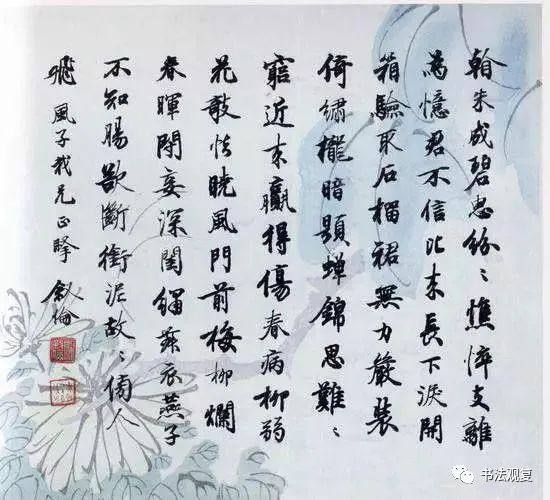 看朱成碧思紛〻憔悴支離
為憶君不信比来長下淚開
箱驗取石榴裙無力嚴裝
倚繡櫳暗題蟬錦思難〻
窮近来羸得傷春病柳弱
花欹怯曉風門前梅柳爛
春暉閉妾深閨繡舞衣燕子
不知腸欲斷銜泥故〻傍人
飛 風子我兄正 叙倫
书法观复